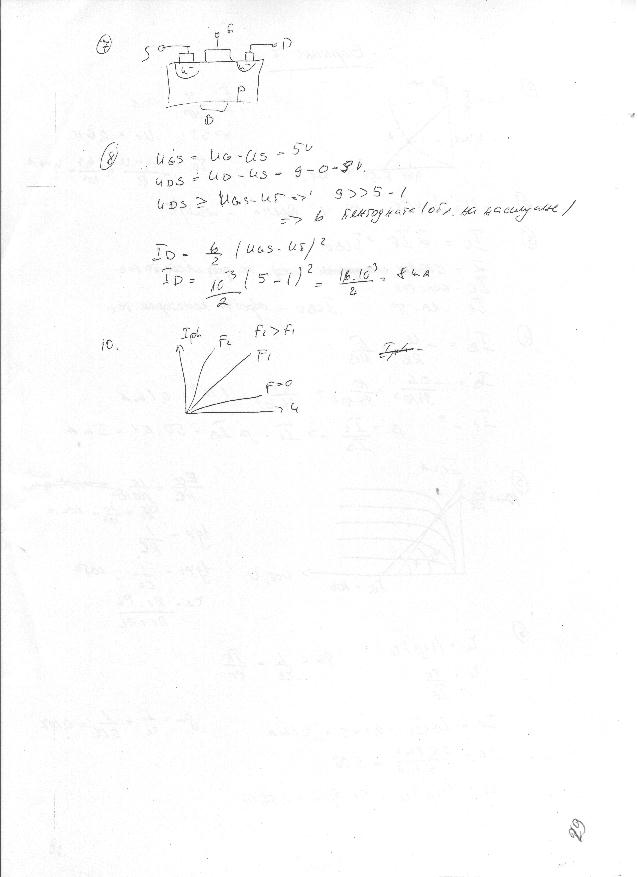 7
G
S D
n n
P
B
8 UGS = UG - US = 5V
UDS = UD - US = 9 - 0 = 9V.
UDS ≥ UGS - UT => 9 >> 5 - 1
=> в пентодната / обл. на насищане /
ID = b/2 (UGS - UT)²
ID = 10⁻³/2 (5 - 1)² = 16.10⁻³/2 = 8 mA
10. Iph F2 f2 > f1
F1
F=0
U
29